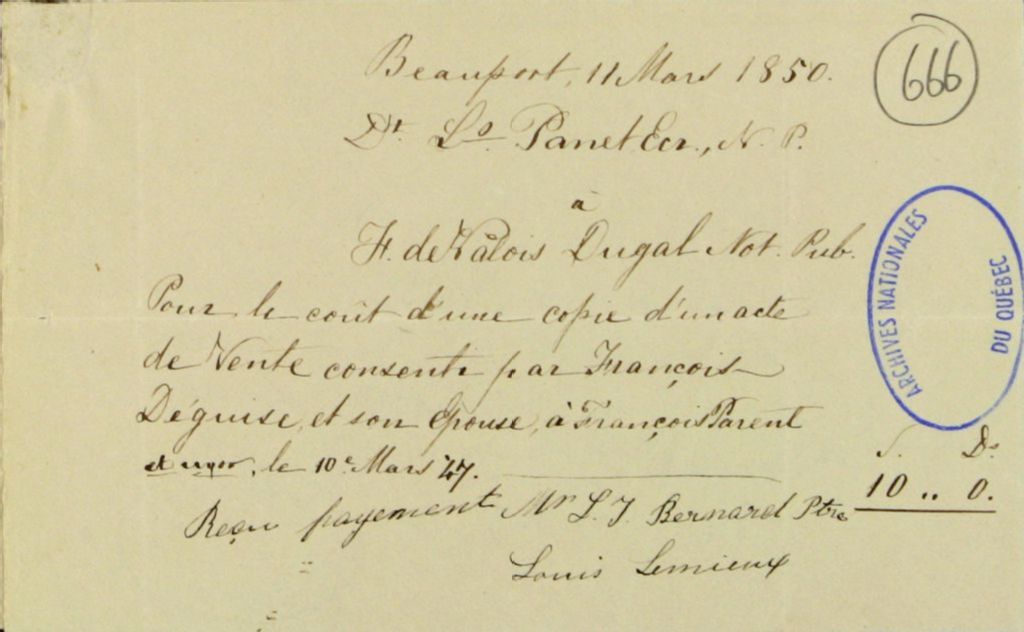 666
Beauport, 11 Mars 1850.
Dt. Ls. Panet Ecr., N. P.
à
F. de Valois Dugal Not. Pub.
Pour le coût d'une copie d'un acte
de Vente consenti par François
Déguise, et son Epouse, à François Parent
et uxor, le 10e Mars 47.
S. D.
10 .. 0.
Reçu payement Mr L. J. Bernard Ptre
Louis Lemieux
ARCHIVES NATIONALES
DU QUÉBEC